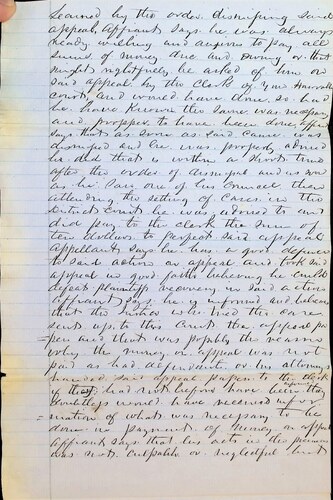 learned by the order dismissing said
appeal, Affiant says he was always
ready willing and anxious to pay all
sums of money due and owing or that
might rightfully be asked of him on
said appeal by the Clerk of your Honorable
court and would have done so had
he have known the same was necessary
and propper to have been done, affiant
says that as soon as said cause was
dismissed and he was properly advised
he did that is within a short time
after the order of dismissal and as soon
as he saw one of his counsel then
attending the setting of cases in the
District Court he was advised to and
did pay to the clerk the sum of
ten dollars to perfect said appeal
appellant says he has a good defence
to said action on appeal and took said
appeal in good faith believing he could
defeat plaintiffs recovery in said action
Affiant says he is informed and believes
that the Justice was used the
sent up to this Court the appeal pa
pers and that was probably the reason
why the money on appeal was not
paid as had defendant or his attorneys
handed said appeal papers to the clerk
if they had not before have been they
doubtless would have received infor
mation of what was necessary to be
done in payment of money on appeal
affiant says that his acts in the premises
was not culpable or neglectful but